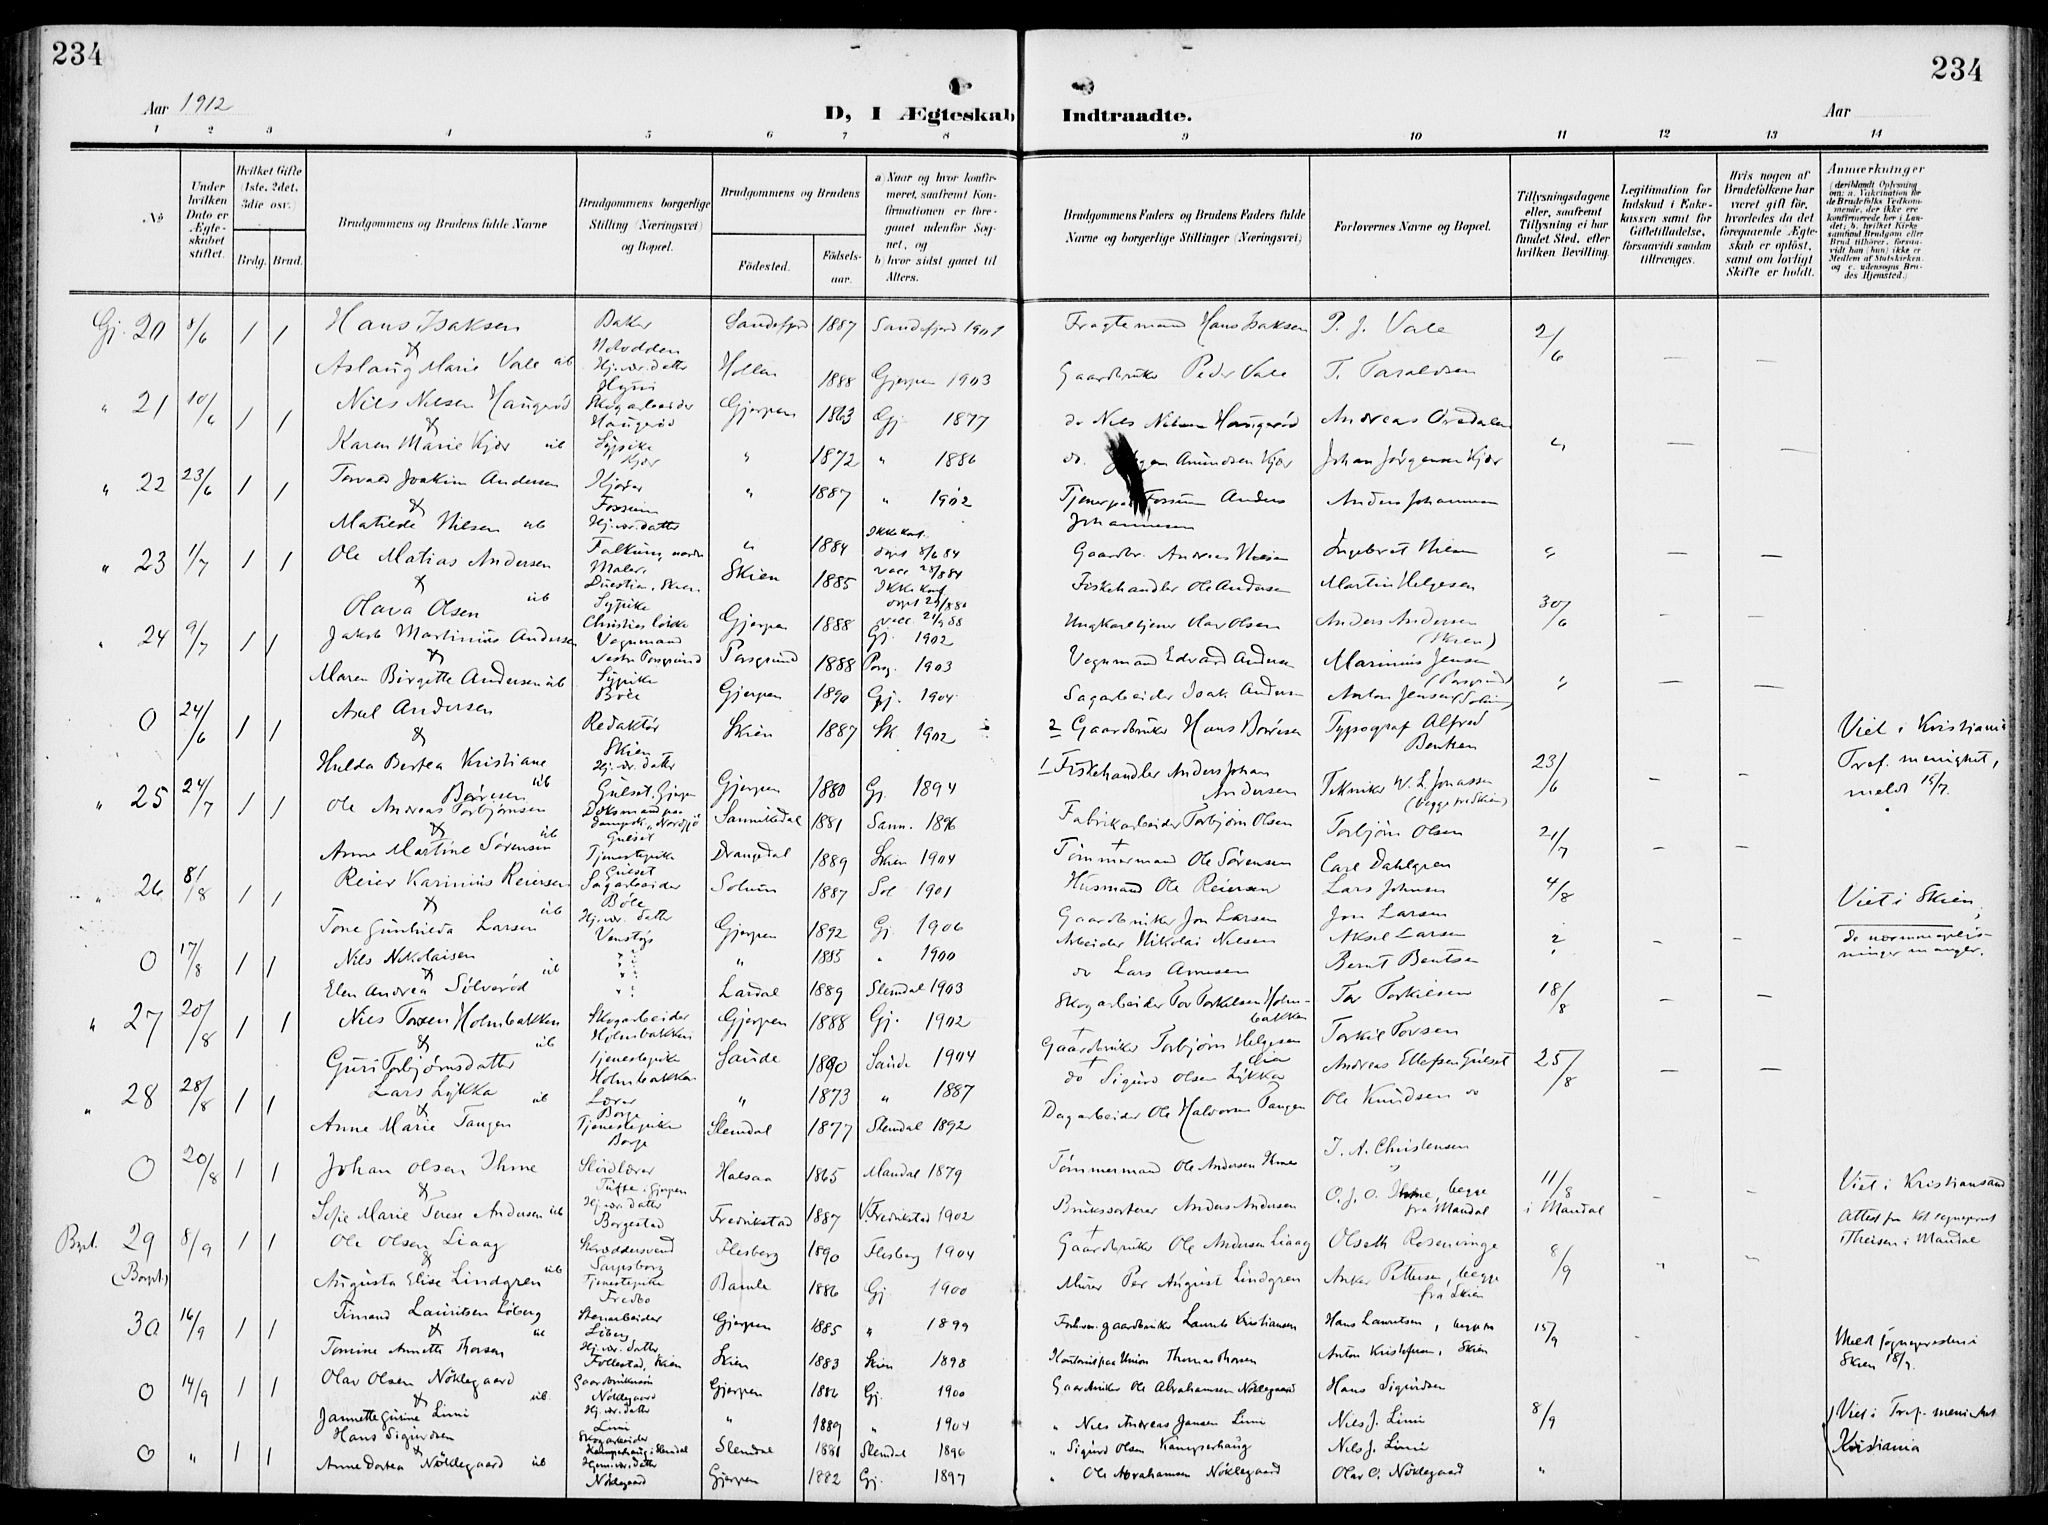 234
234
Aar 1912
D, I Ægteskab Indtraadte.
Aar
1 2 3 4 5 6 7 8 9 10 11 12 13 14
No
Under hvilken Dato er Ægteskabet stiftet.
Hvilket Gifte (1ste, 2det, 3die osv.)
Brdg. Brud.
Brudgommens og Brudens fulde Navne
Brudgommens borgerlige Stilling (Næringsvei) og Bopæl.
Brudgommens og Brudens
Fødested.
Fødselsaar.
a) Naar og hvor konfirmeret, saafremt Konfirmationen er foregaaet udenfor Sognet, og
b) hvor sidst gaaet til Alters.
Brudgommens Faders og Brudens Faders fulde Navne og borgerlige Stillinger (Næringsvei)
Forlovernes Navne og Bopæl.
Tillysningsdagene eller, saafremt Tillysning ei har fundet Sted, efter hvilken Bevilling.
Legitimation for Indskud i Enkekassen samt for Giftetilladelse, forsaavidt saadan tiltrænges.
Hvis nogen af Brudefolkene har været gift før, hvorledes da det foregaaende Ægteskab er opløst, samt om lovligt Skifte er holdt.
Anmærkninger
(deriblandt Oplysning om: a. Vakcination for de Brudefolks Vedkommende, der ikke ere konfirmerede her i Landet; b. hvilket Kirkesamfund Brudgom eller Brud tilhører, forsaavidt han (hun) ikke er Medlem af Statskirken, og c. udensogns Brudes Hjemsted.)
Gj. 20 8/6 1 1 Hans Isaksen Baker Notodden Sandefjord 1887 Sandefjord 1901 Fragtemand Hans Isaksen P. J. Vale 2/6
Aslaug Marie Vale üb Hj. vær. datter Hollen 1888 Gjerpen 1903 Gaardbruker Peder Vale T. Taraldsen
" 21 10/6 1 1 Nils Nilsen Haugerød Skogarbeider Haugerød Gjerpen 1863 Gj. 1877 do Nils Nilsen Haugerød Andreas
Karen Marie Kjær üb Sypike Kjær " 1872 " 1886 do. Amundsen Kjær Johan Jørgensen Kjær "
" 22 23/6 1 1 Torvald Joakim Andersen Fossum " 1887 " 1902 Fossum Anders Johannesen Anders Johannesen
Matilde Nilsen üb Hj. vær. datter Falkum, nordre " 1884 Ikke konf. døpt 8/6 84 Gaardbr. Andreas Nilsen Ingebret Nilsen "
" 23 1/7 1 1 Ole Matias Andersen Maler, Skien Skien 1885 Ikke konf Fiskehandler Ole Andersen Martin Helgesen
Olava Olsen üb Sypike Gjerpen 1888 Gj. 1902 Ungkarl tjener Olav Olsen Anders Andersen (Skien) 30/6
" 24 9/7 1 1 Jakob Martinius Andersen Vognmand Vestre Porsgrund Porsgrund 1888 Pors. 1903 Vognmand Edvard Andersen Marinius Jensen (Porsgrund)
Maren Birgitte Andersen üb Sypike Böle Gjerpen 1890 Gj. 1904 Sagarbeider Isak Andersen Anton Jensen "
0 24/6 1 1 Axel Andersen Redaktør Skien Skien 1887 Sk. 1902 2 Gaardbruker Hans Børresen Typograf Alfred Bentsen Viet i Kristiania
Hulda Bertea Kristiane Børresen üb Hj. vær. datter Gulset, Gjerpen Gjerpen 1880 Gj. 1894 1 Fiskehandler Anders Johan Andersen Tekniker W. L. Jonassen (begge fra Skien) 23/6 Pref. menighet, meldt 15/7.
" 25 24/7 1 1 Ole Andreas Torbjørnsen Gulset Sannikedal 1881 Sann. 1896 Fabrikarbeider Torbjørn Olsen Torbjørn Olsen 21/7
Anne Martine Sørensen üb Tjenestepike Gulset Drangedal 1889 Skien 1904 Tømmermand Ole Sørensen Carl Dahlgren
" 26 8/8 1 1 Reier Karinius Reiersen Sagarbeider Böle Solum 1887 Sol 1901 Husmand Ole Reiersen Lars Johnsen 4/8
Tone Gunhilda Larsen üb Hj. vær. datter Venstøp Gjerpen 1892 Gj. 1906 Gaardbruker Jon Larsen Jon Larsen Viet i Skien,
0 17/8 1 1 Nils Nikolaisen " 1885 " 1900 Arbeider Nikolai Nilsen Aksel Larsen ? mangler.
Elen Andrea Sølverød üb Lardal 1889 Slemdal 1903 do Lars Arnesen Bernt Bentsen
" 27 20/8 1 1 Nils Torsen Holmbakken Skogarbeider Holmbakken Gjerpen 1888 Gj. 1902 Skogarbeider Tor Torkelsen Holmbakken Tor Torkilsen 18/8
Guri Torbjørnsdatter üb Tjenestepike Holmbakken Saude 1890 Saude 1904 Gaardbruker Torbjørn Helgesen Lia Torkil Torsen
" 28 28/8 1 1 Lars Lykka Lærer Borge " 1873 " 1887 do Sigurd Olsen Lykka Andreas Ellefsen Gulset 25/8
Anne Marie Tangen üb Tjenestepike Borge Slemdal 1877 Slemdal 1892 Dagarbeider Ole Halvorsen Tangen Ole Knudsen do
0 20/8 1 1 Johan Olsen Ihme Sløidlærer Tufte, Gjerpen Halsaa 1865 Mandal 1879 Tømmermand Ole Andersen Ihme T. A. Christensen
Sofie Marie Terese Andersen üb Hj. vær. datter Borgestad Fredrikstad 1887 V. Fredrikstad 1902 Brukssorterer Anders Andersen O. J. O. Ihme, begge fra Mandal 11/8 i Mandal Viet i Kristiansand
Bpt. 29 (Borpt.) 8/9 1 1 Ole Olsen Liaag Skræddersvend Sarpsborg Flesberg 1890 Flesberg 1904 Gaardbruker Ole Andersen Liaag Olseth Rosenvinge Theisen i Mandal
Augusta Elise Lindgren üb Tjenestepike Fredbo Bamle 1886 Gj. 1900 Murer Per August Lindgren Anker Pettersen, begge fra Skien 8/9
30 16/9 1 1 Timand Lauritsen Liberg Stenarbeider Liberg Gjerpen 1885 " 1899 Forhv. gaardbruker Laurits Kristiansen Hans Lauritsen, begge 15/9
Tomine Annette Thorsen üb Hj. vær. datter Follestad, Skien Skien 1883 Skien 1898 Kontorist paa Union Thomas Thorsen Anton Kristofersen, Skien Meldt sognepresten i Skien 18/9.
0 14/9 1 1 Olav Olsen Nöklegaard Nöklegaard Gjerpen 1886 Gj. 1900 Gaardbruker Ole Abrahamsen Nöklegaard Hans Sigurdsen
Jannette Gurine Limi üb Hj. vær. datter Limi " 1889 " 1904 " Nils Andreas Jansen Limi Nils J. Limi 8/9 Viet i Pref. men. Kristiania
0 " 1 1 Hans Sigurdsen Skogarbeider Kamperhaug i Slemdal Slemdal 1881 Slemdal 1896 " Sigurd Olsen Kamperhaug Nils J. Limi
Anne Dortea Nöklegaard üb Hjem. vær. datter Nöklegaard Gjerpen 1882 Gj. 1897 " Ole Abrahamsen Nöklegaard Olav O. Nöklegaard "